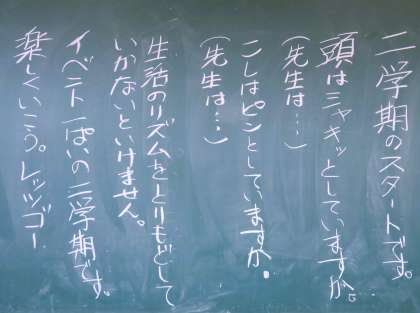 二学期のスタートです。
頭はシャキッとしていますか。
(先生は…)
こしはピンとしていますか。
(先生は…)
生活のリズムをとりもどして
いかないといけません。
イベント一ぱいの二学期です。
楽しくいこう。レッツゴー